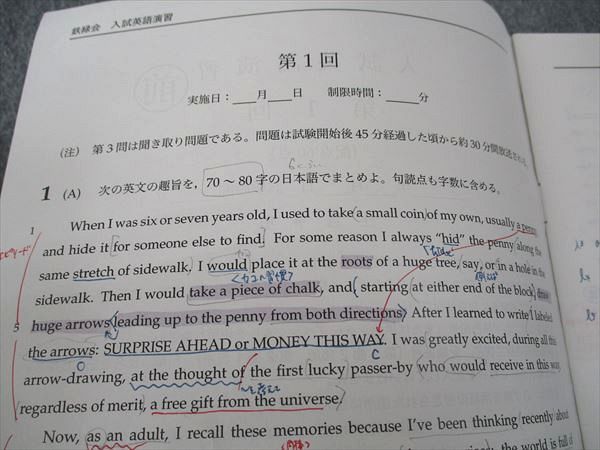 鉄緑会 入試英語演習
第1回
実施日：＿＿月＿＿日 制限時間：＿＿分
(注) 第3問は聞き取り問題である。問題は試験開始後45分経過した頃から約30分間放送される。
1 (A) 次の英文の趣旨を，70～80字の日本語でまとめよ。句読点も字数に含める。
1 When I was six or seven years old, I used to take a small coin of my own, usually a penny,
and hide it for someone else to find. For some reason I always "hid" the penny along the
same stretch of sidewalk. I would place it at the roots of a huge tree, say, or in a hole in the
sidewalk. Then I would take a piece of chalk, and starting at either end of the block, draw
5 huge arrows leading up to the penny from both directions. After I learned to write I labeled
the arrows: SURPRISE AHEAD or MONEY THIS WAY. I was greatly excited, during all this
arrow-drawing, at the thought of the first lucky passer-by who would receive in this way,
regardless of merit, a free gift from the universe.
Now, as an adult, I recall these memories because I've been thinking recently about
the world is full of